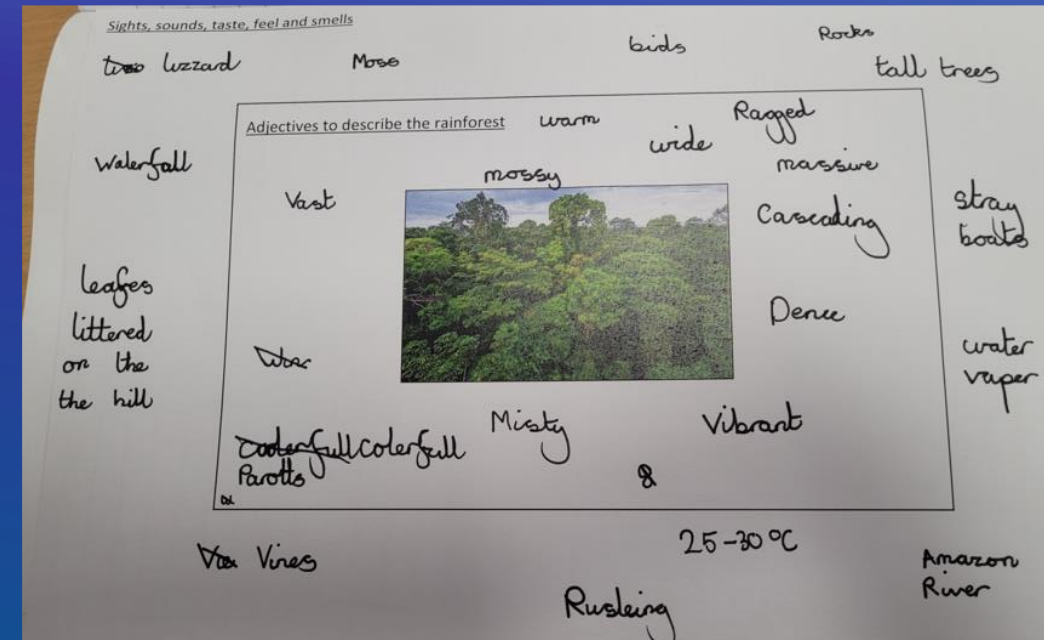 Sights, sounds, taste, feel and smells
luzzard
Moss
bids
Rocks
tall trees
Adjectives to describe the rainforest
warm
wide
Ragged
massive
mossy
Walerfall
Vast
Cascading
stray
boats
leafes
littered
on the
the hill
Dence
water
vaper
Misty
Vibrant
colerfull
Parotts
&
Vines
25-30°C
Amazon
River
Rusleing